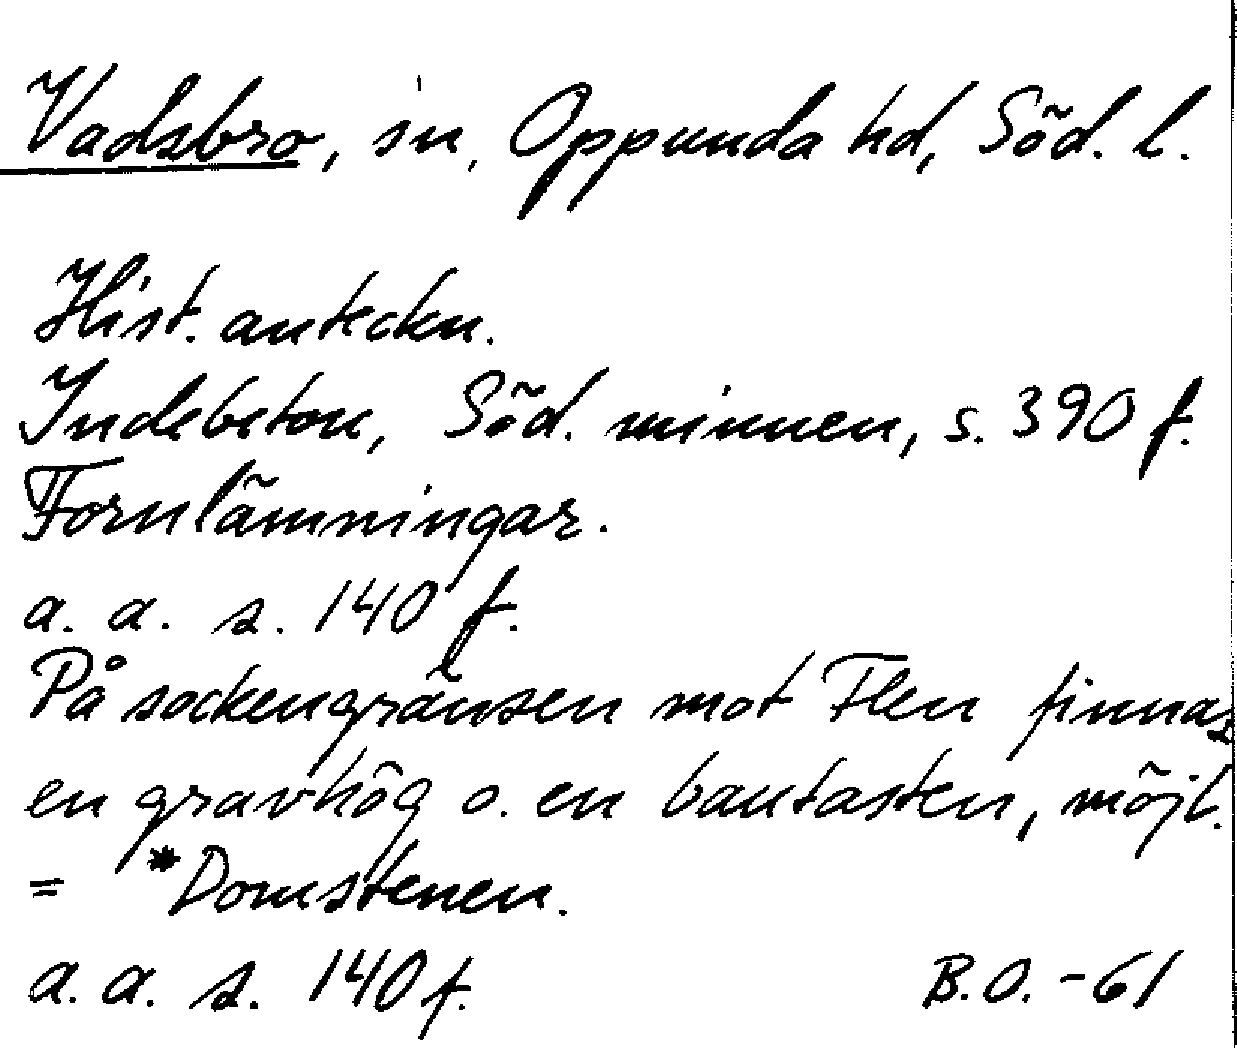 Vadsbro, sn, Oppunda hd, Söd. l.
Hist. anteckn.
Indebetou, Söd. minnen, s. 390 f.
Fornlämningar.
a. a. s. 140 f.
På sockengränsen mot Flen finnas
en gravhög o. en bautasten, möjl.
= *Domstenen.
a. a. s. 140 f. B.O. -61